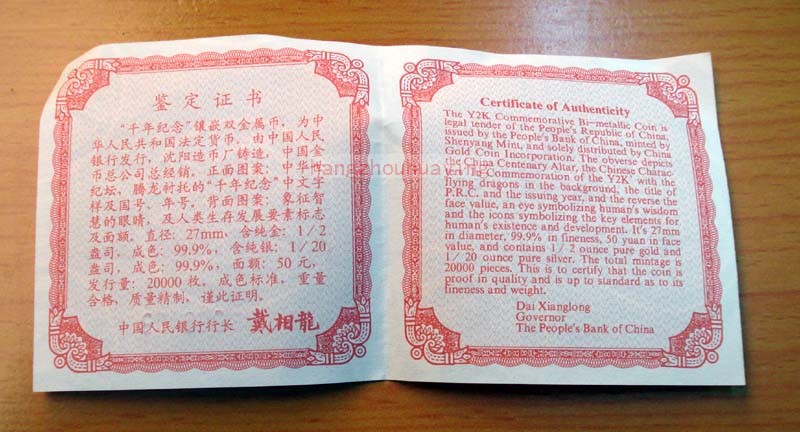 鉴定证书
“千年纪念”镶嵌双金属币，为中
华人民共和国法定货币。由中国人民
银行发行，沈阳造币厂铸造，中国金
币总公司总经销。正面图案：中华世
纪坛，腾龙衬托的“千年纪念”中文字
样及国号、年号。背面图案：象征智
慧的眼睛，及人类生存发展要素标志
及面额。直径：27mm，含纯金：1/2
盎司，成色：99.9%，含纯银：1/20
盎司，成色：99.9%，面额：50元，
发行量：20000枚。成色标准，重量
合格，质量精制，谨此证明。
中国人民银行行长 戴相龍
Certificate of Authenticity
The Y2K Commemorative Bi-metallic Coin is
legal tender of the People's Republic of China,
issued by the People's Bank of China, minted by
Shenyang Mint, and solely distributed by China
Gold Coin Incorporation. The obverse depicts
the China Centenary Altar, the Chinese Charac-
ters "Commemoration of the Y2K" with the
flying dragons in the background, the title of
P.R.C. and the issuing year, and the reverse the
face value, an eye symbolizing human's wisdom
and the icons symbolizing the key elements for
human's existence and development. It's 27mm
in diameter, 99.9% in fineness, 50 yuan in face
value, and contains 1/2 ounce pure gold and
1/20 ounce pure silver. The total mintage is
20000 pieces. This is to certify that the coin is
proof in quality and is up to standard as to its
fineness and weight.
Dai Xianglong
Governor
The People's Bank of China